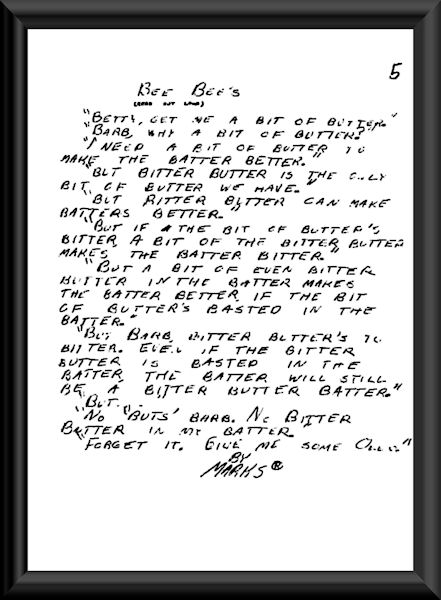 5
BEE BEE'S
(READ OUT LOUD)
"BETTY, GET ME A BIT OF BUTTER."
"BARB, WHY A BIT OF BUTTER?"
"I NEED A BIT OF BUTTER TO
MAKE THE BATTER BETTER."
"BUT BITTER BUTTER IS THE ONLY
BIT OF BUTTER WE HAVE."
"BUT BITTER BUTTER CAN MAKE
BATTERS BETTER."
"BUT IF THE BIT OF BUTTER'S
BITTER, A BIT OF THE BITTER BUTTER
MAKES THE BATTER BITTER."
"BUT A BIT OF EVEN BITTER
BUTTER IN THE BATTER MAKES
THE BATTER BETTER IF THE BIT
OF BUTTER'S BASTED IN THE
BATTER."
"BUT BARB, BITTER BUTTER'S TO
BITTER. EVEN IF THE BITTER
BUTTER IS BASTED IN THE
BATTER THE BATTER WILL STILL
BE A BITTER BUTTER BATTER."
"BUT..."
"NO 'BUTS' BARB. NO BITTER
BUTTER IN MY BATTER."
"FORGET IT. GIVE ME SOME
BY
MARKS ®